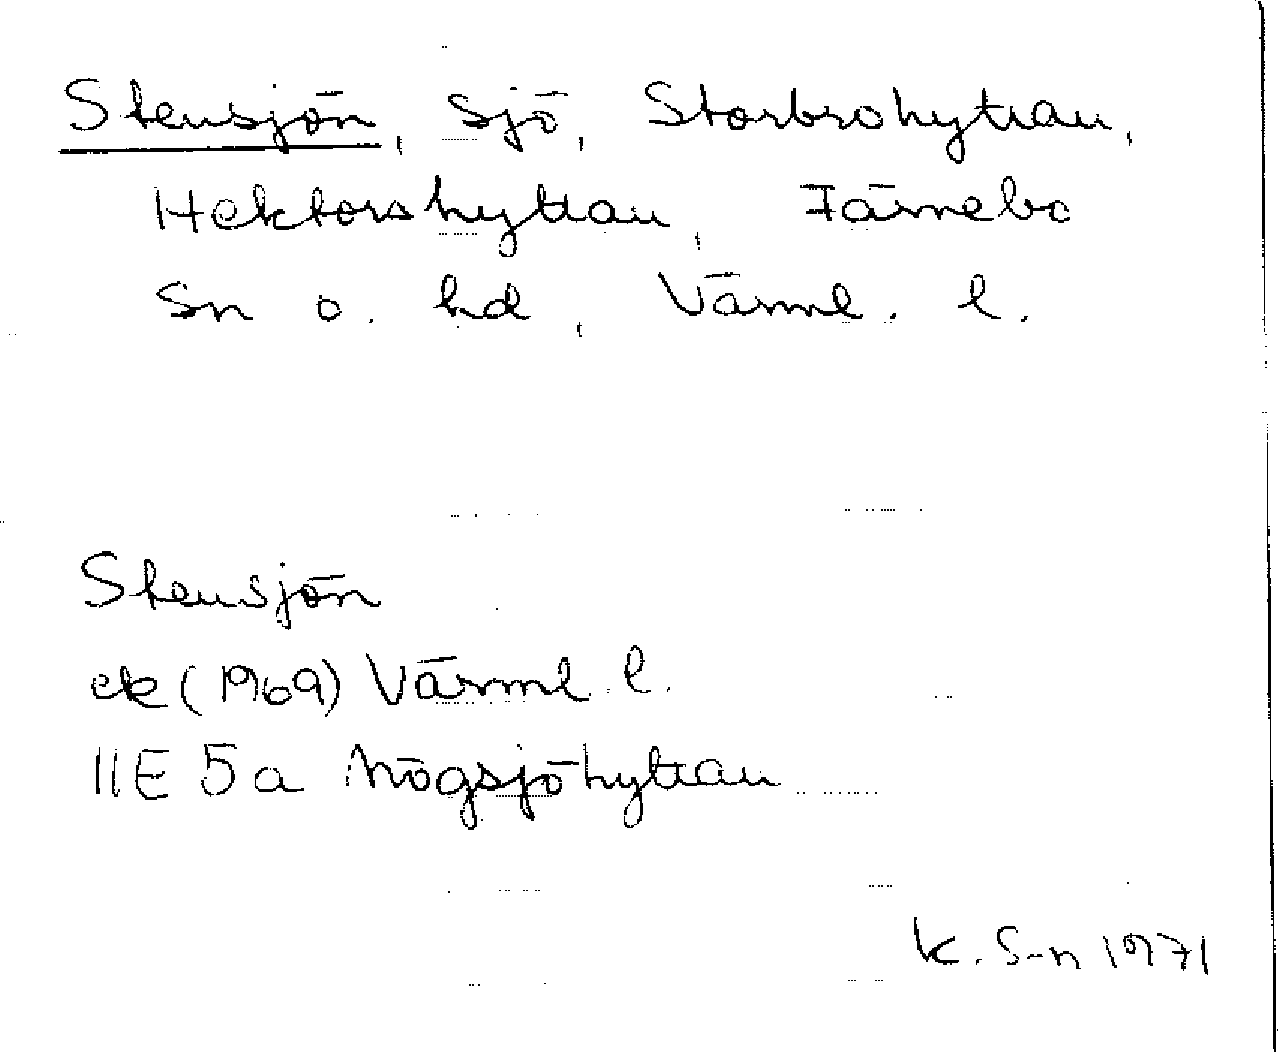 Stensjön, sjö, Storbrohyttan,
Hektorshyttan, Färnebo
sn o. hd, Värml. l.
Stensjön
ek (1969) Värml. l.
11E 5a Högsjöhyttan
K. S-n 1971